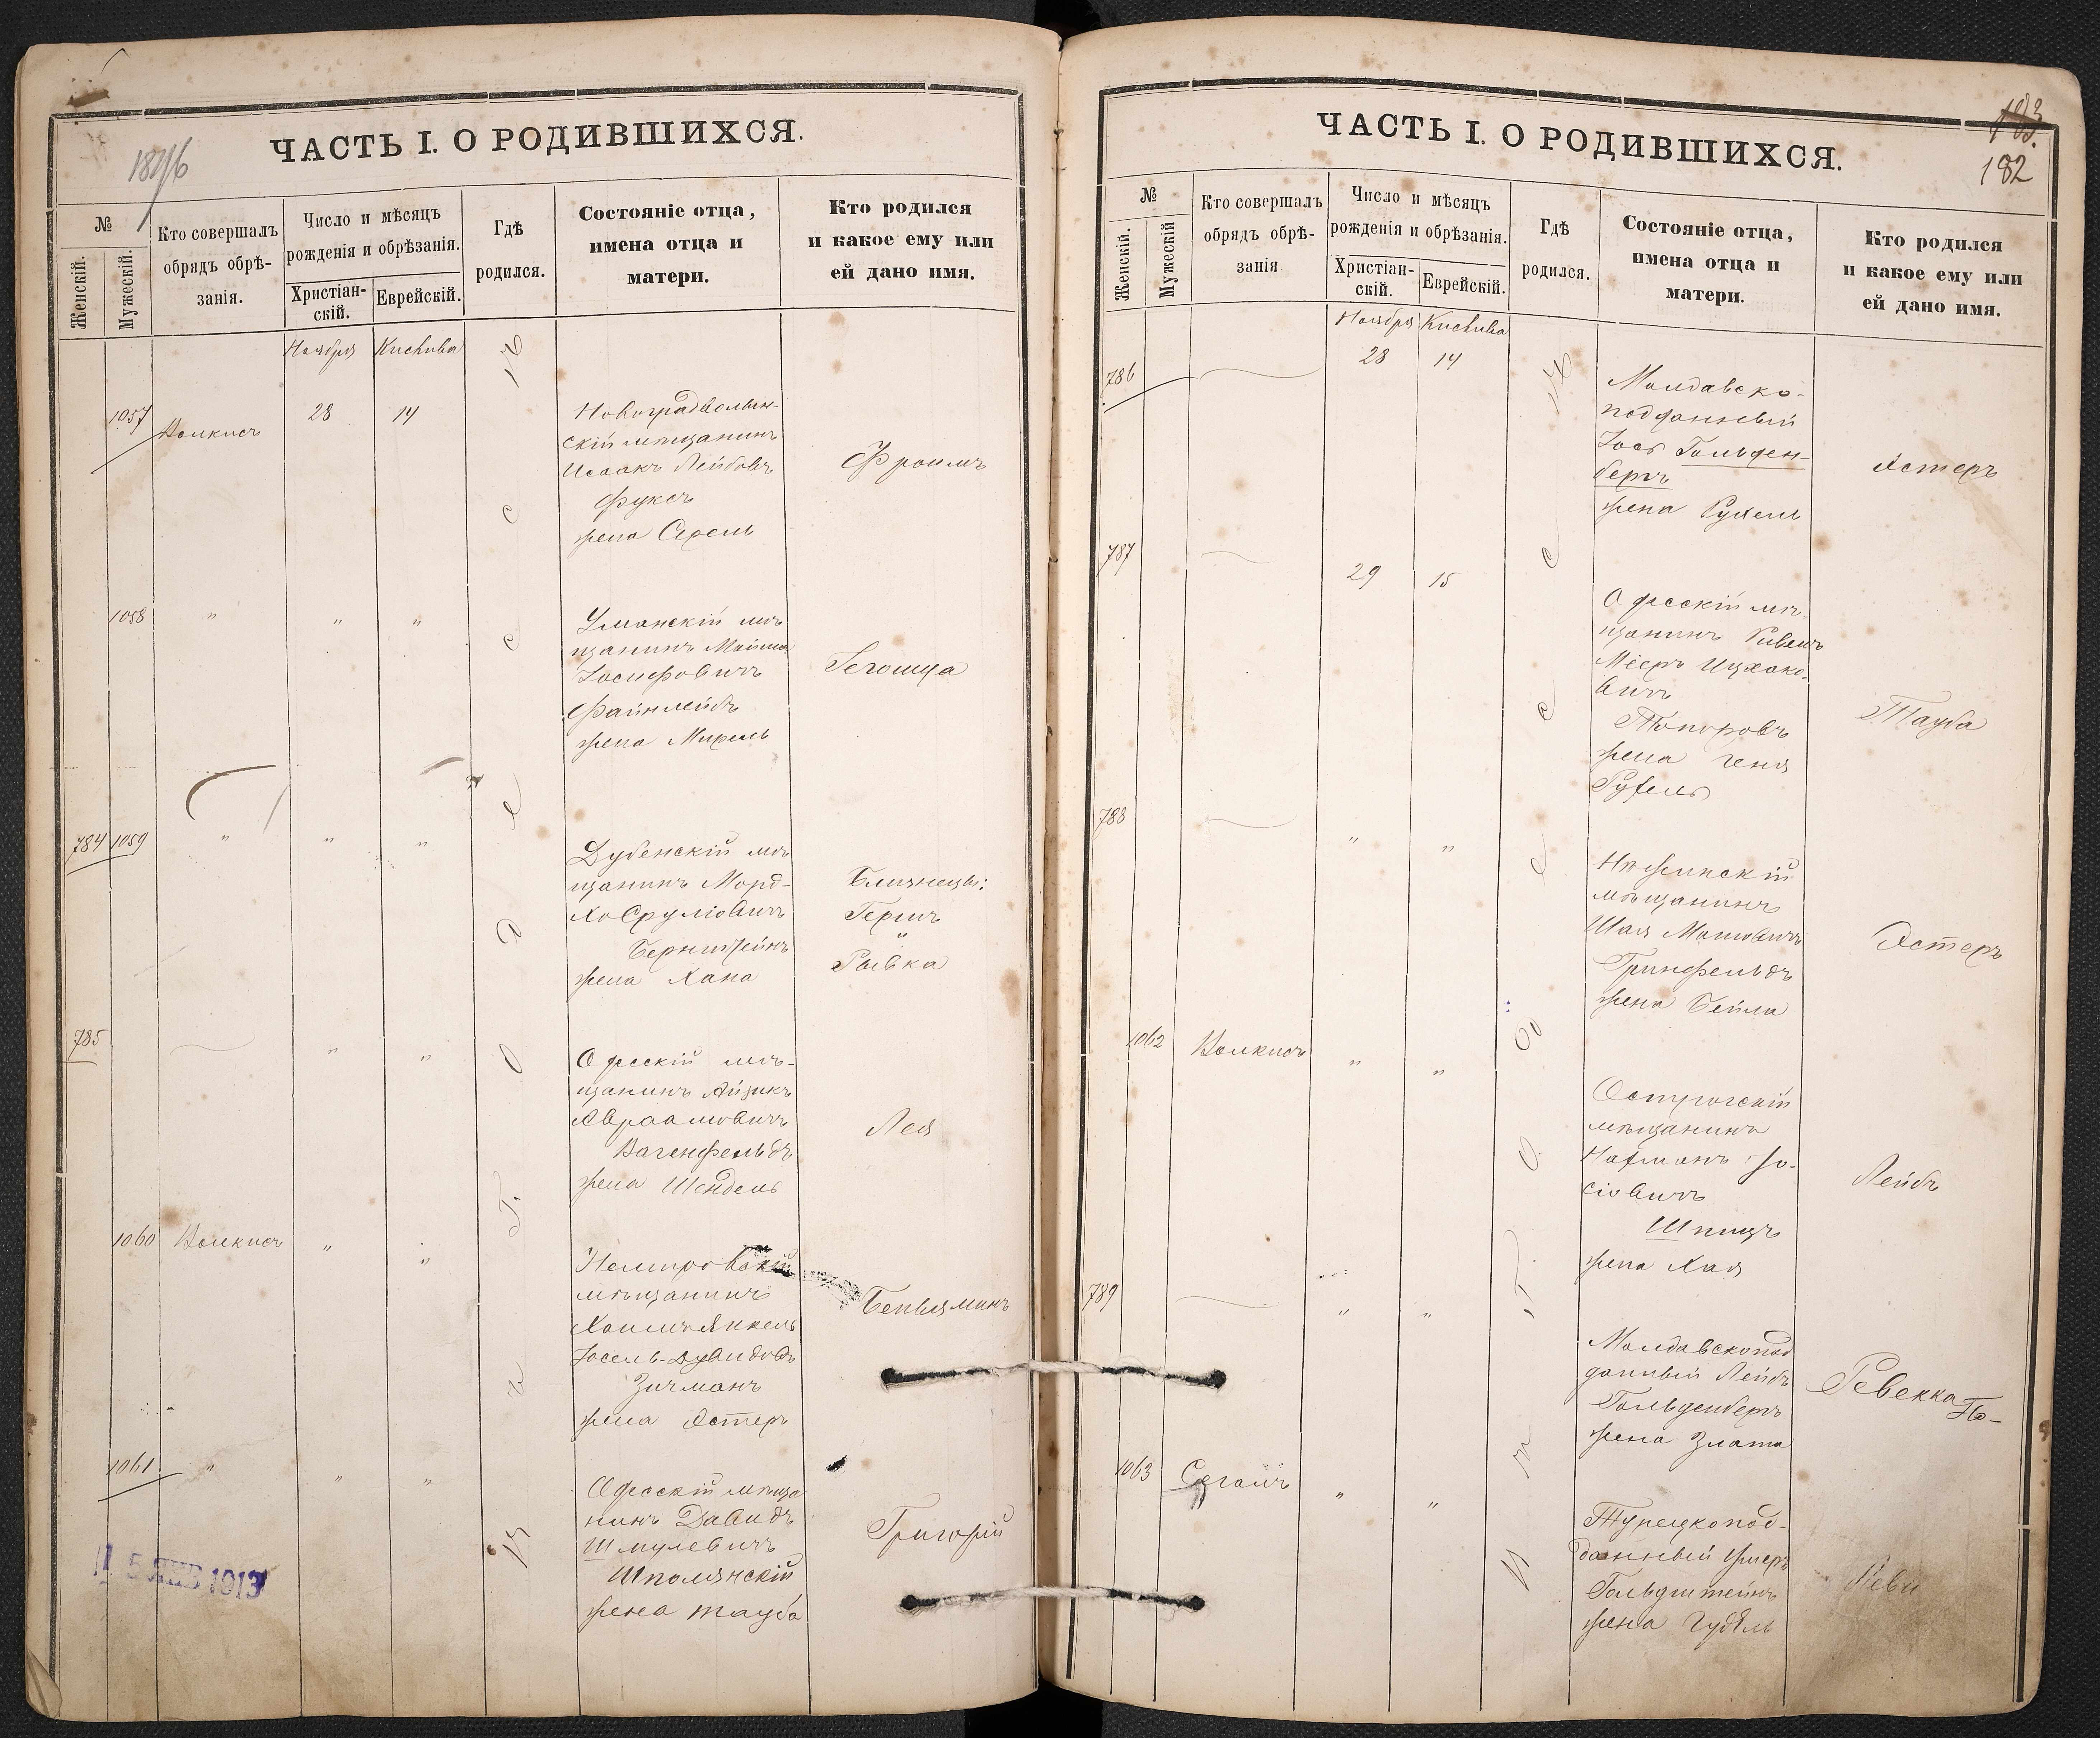 ЧАСТЬ I. О РОДИВШИХСЯ.
№
Женскій.
Мужескій.
Кто совершалъ
обрядъ обрѣ-
занія.
Число и мѣсяцъ
рожденія и обрѣзанія.
Христіан-
скій.
Еврейскій.
Гдѣ
родился.
Состояніе отца,
имена отца и
матери.
Кто родился
и какое ему или
ей дано имя.
Ноября Кислива
1057
28 14
Новоградволын-
скій мѣщанинъ
Исаакъ Лейбовъ
Фуксъ
жена
Фроимъ
1058 " " "
Уманскій мѣ-
щанинъ
Іосифовичъ
Файнлейбъ
жена
784 1059 " " "
Дубенскій мѣ-
щанинъ Морд-
ко Сруліовичъ
Бернштейнъ
жена Хана
Близнецы:
Герш
Рывка
785 " "
Одесскій мѣ-
щанинъ Айзикъ
Авраамовичъ
Вагенфельдъ
жена Шендель
Лея
1060 " "
Немировскій
мѣщанинъ
Хаимъ Янкель
Іосель-Дувидовъ
Зигманъ
жена Эстеръ
Беньяминъ
1061 " " "
Одесскій мѣща
нинъ Давидъ
Шмулевичъ
Шполянскій
жена Тауба
Григорій
5 ЯНВ 1913
ЧАСТЬ I. О РОДИВШИХСЯ.
182
№
Женскій.
Мужескій
Кто совершалъ
обрядъ обрѣ-
занія
Число и мѣсяцъ
рожденія и обрѣзанія.
Христіан-
скій.
Еврейскій.
Гдѣ
родился.
Состояніе отца,
имена отца и
матери.
Кто родился
и какое ему или
ей дано имя.
Ноября Кислива
786 28 14
Молдавско-
подданный
Іось Гольден-
бергъ
жена Рухель
Эстеръ
787 29 15
Одесскій мѣ-
щанинъ
Мееръ Ицхоко-
вичъ
Топоровъ
жена Геня
Рухель
Тауба
788 " "
Нѣжинскій
мѣщанинъ
Шая
Гринфельдъ
жена Бейла
Эстеръ
1062 " "
Острогскій
мѣщанинъ
Нахманъ Іо-
сіовичъ
Шпицъ
жена Хая
Лейбъ
789 " "
Молдавскопод
данный Лейбъ
Гольденбергъ
жена Злата
Ревекка
1063 Сегалъ " "
Турецкопод-
данный
Гольдштейнъ
жена